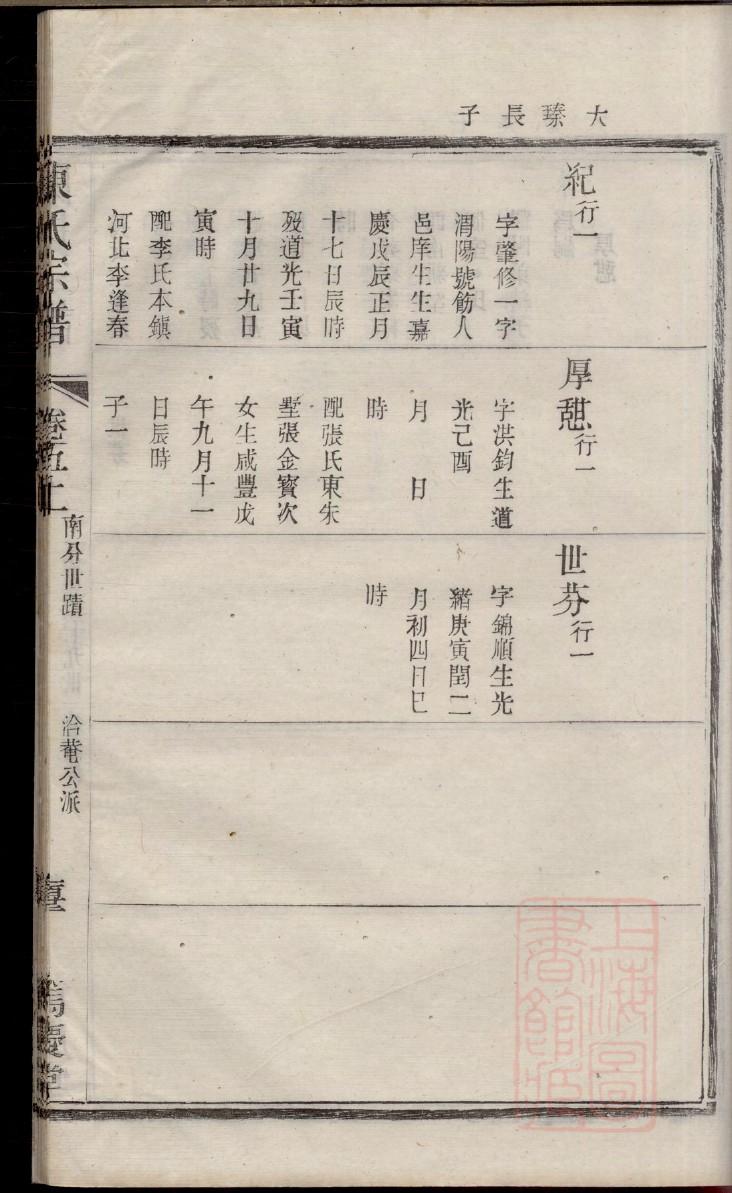 大瑧長子
紀行一
字肇修一字
渭陽號飭人
邑庠生生嘉
慶戊辰正月
十七日辰時
歿道光壬寅
十月廿九日
寅時
配李氏本鎮
河北李逢春
厚憇行一
字洪鈞生道
光己酉
月 日
時
配張氏東朱
墅張金寶次
女生咸豐戊
午九月十一
日辰時
子一
世芬行一
字錦順生光
緒庚寅閏二
月初四日巳
時
陳氏宗譜
卷五上
南分世蹟
洽菴公派
篤慶堂
上海圖
書館藏